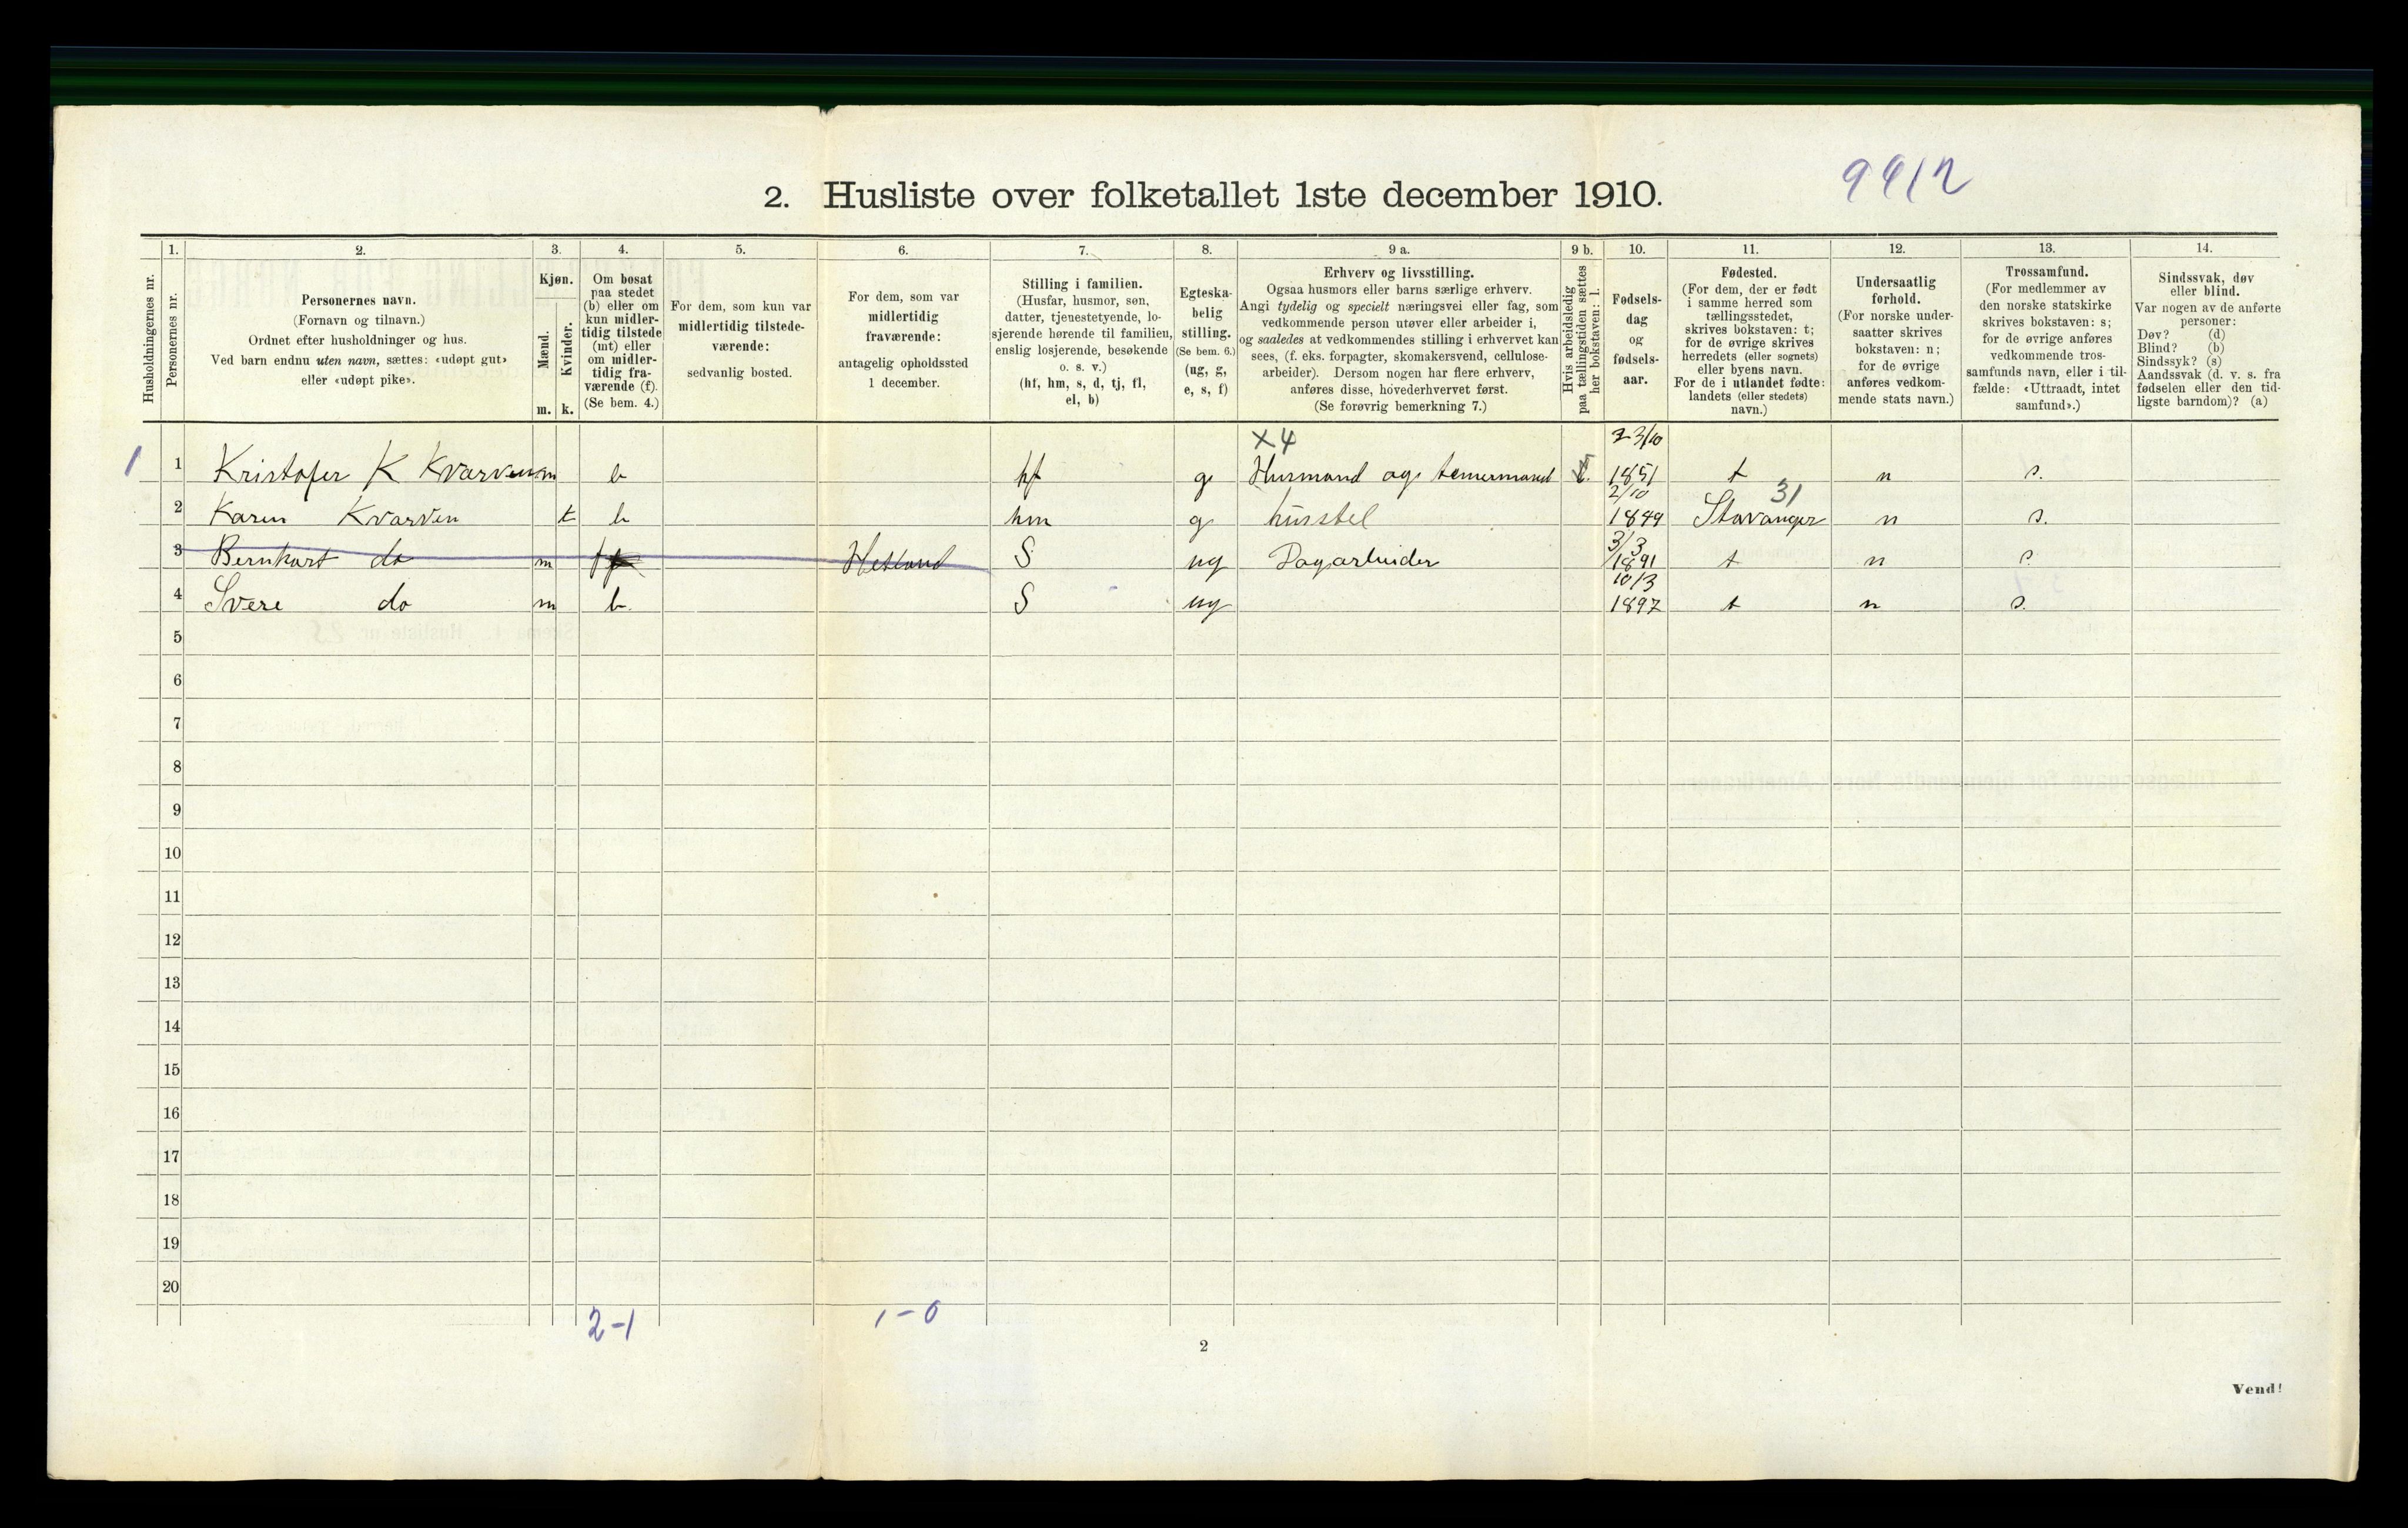 9412
2. Husliste over folketallet 1ste december 1910.
Husholdningernes nr.
1.
Personernes nr.
2.
Personernes navn.
(Fornavn og tilnavn.)
Ordnet efter husholdninger og hus.
Ved barn endnu uten navn, sættes: «udøpt gut»
eller «udøpt pike».
3.
Kjøn.
Mænd.
Kvinder.
m. k.
4.
Om bosat
paa stedet
(b) eller om
kun midler-
tidig tilstede
(mt) eller
om midler-
tidig fra-
værende (f).
(Se bem. 4.)
5.
For dem, som kun var
midlertidig tilstede-
værende:
sedvanlig bosted.
6.
For dem, som var
midlertidig
fraværende:
antagelig opholdssted
1 december.
7.
Stilling i familien.
(Husfar, husmor, søn,
datter, tjenestetyende, lo-
sjerende hørende til familien,
enslig losjerende, besøkende
o. s. v.)
(hf, hm, s, d, tj, fl,
el, b)
8.
Egteska-
belig
stilling.
(Se bem. 6.)
(ug, g,
e, s, f)
9 a.
Erhverv og livsstilling.
Ogsaa husmors eller barns særlige erhverv.
Angi tydelig og specielt næringsvei eller fag, som
vedkommende person utøver eller arbeider i,
og saaledes at vedkommendes stilling i erhvervet kan
sees, (f. eks. forpagter, skomakersvend, cellulose-
arbeider). Dersom nogen har flere erhverv,
anføres disse, hovederhvervet først.
(Se forøvrig bemerkning 7.)
9 b.
Hvis arbeidsledig
paa tællingstiden sættes
her bokstaven: l.
10.
Fødsels-
dag
og
fødsels-
aar.
11.
Fødested.
(For dem, der er født
i samme herred som
tællingsstedet,
skrives bokstaven: t;
for de øvrige skrives
herredets (eller sognets)
eller byens navn.
For de i utlandet fødte:
landets (eller stedets)
navn.)
12.
Undersaatlig
forhold.
(For norske under-
saatter skrives
bokstaven: n;
for de øvrige
anføres vedkom-
mende stats navn.)
13.
Trossamfund.
(For medlemmer av
den norske statskirke
skrives bokstaven: s;
for de øvrige anføres
vedkommende tros-
samfunds navn, eller i til-
fælde: «Uttraadt, intet
samfund».)
14.
Sindssvak, døv
eller blind.
Var nogen av de anførte
personer:
Døv? (d)
Blind? (b)
Sindssyk? (s)
Aandssvak (d. v. s. fra
fødselen eller den tid-
ligste barndom)? (a)
x4 23/10
1 1 Kristofer K Kvarven m b hf g Husmand og tømermand 1851 t n s.
2/10 31
2 Karen Kvarven k b hm g husstel 1849 Stavanger n s.
3/3
3 Bernhart do m f Hetland S ug Dagarbeider 1891 t n s
10/3
4 Svere do m b. S ug 1897 t n s.
5
6
7
8
9
10
11
12
13
14
15
16
17
18
19
20
2-1 1-0
2
Vend!